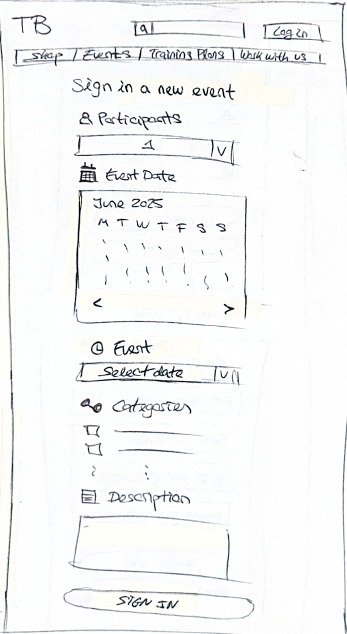 TB Log in
Shop / Events / Training Plans | Work with us |
Sign in a new event
Participants
1
Event Date
June 2025
M T W T F S S
< >
Event
Select date
Categories
Description
SIGN IN